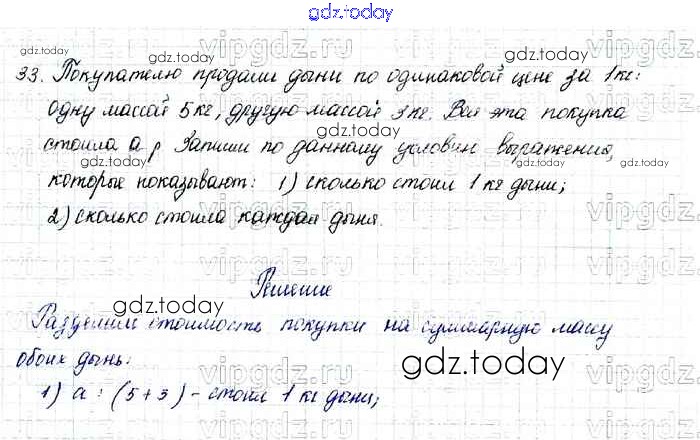 gdz.today
gdz.today gdz.today
33. Покупателю продали дыни по одинаковой цене за 1 кг:
одну массой 5 кг, другую массой 3 кг. Вся эта покупка
gdz.today
стоила а р Запиши по данному условию выражения,
gdz.today
которые показывают: 1) сколько стоил 1 кг дыни;
vipgdz.ru
2) сколько стоила каждая дыня.
vipgdz.ru
Решение
gdz.today
Разделим стоимость покупки на суммарную массу
обоих дынь:
gdz.today
gdz.today
1) а : (5+3) - стоил 1 кг дыни;